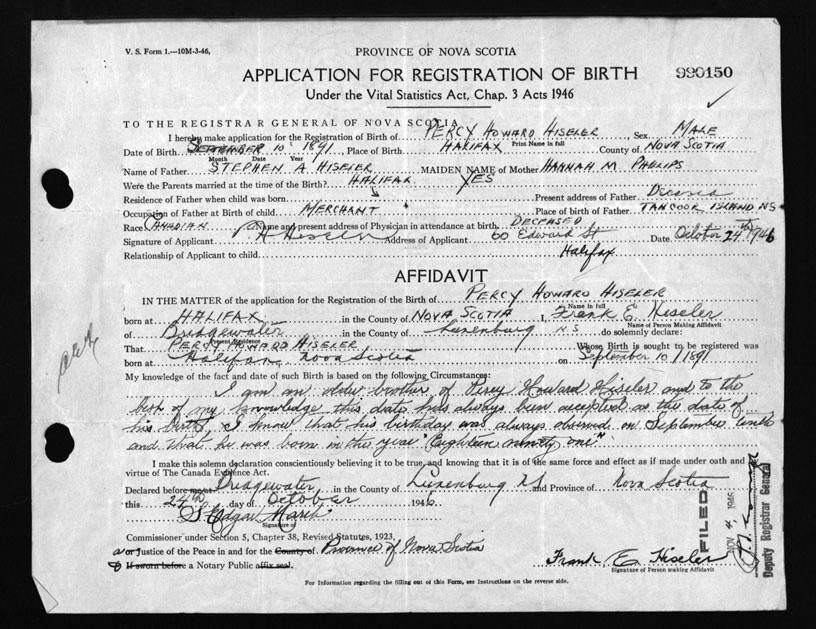 V. S. Form 1.—10M-3-46,
PROVINCE OF NOVA SCOTIA
APPLICATION FOR REGISTRATION OF BIRTH
990150
Under the Vital Statistics Act, Chap. 3 Acts 1946
TO THE REGISTRAR GENERAL OF NOVA SCOTIA
I hereby make application for the Registration of Birth of PERCY HOWARD HISELER, Sex MALE
Print Name in full
Date of Birth SEPTEMBER 10 1891, Place of Birth HALIFAX County of NOVA SCOTIA
Month Date Year
Name of Father STEPHEN A HISELER MAIDEN NAME of Mother HANNAH M PHILIPS
Were the Parents married at the time of the Birth? YES
Residence of Father when child was born HALIFAX Present address of Father Deceased
Occupation of Father at Birth of child MERCHANT Place of birth of Father TANCOOK ISLAND NS
Race CANADIAN Name and present address of Physician in attendance at birth DECEASED
Signature of Applicant P H Hiseler Address of Applicant 60 Edward St Date October 24th 1946
Relationship of Applicant to child Halifax
AFFIDAVIT
IN THE MATTER of the application for the Registration of the Birth of PERCY HOWARD HISELER
Name in full
born at HALIFAX in the County of NOVA SCOTIA I, Frank E. Hiseler
Name of Person Making Affidavit
of Bridgewater in the County of Lunenburg N.S do solemnly declare:
Present Residence
That PERCY HOWARD HISELER Whose Birth is sought to be registered was
born at Halifax Nova Scotia on September 10 / 1891
My knowledge of the fact and date of such Birth is based on the following Circumstances:
I am an older brother of Percy Howard Hiseler and to the
best of my knowledge this date has always been accepted as the date of
his birth. I know that his birthday was always observed on September tenth
and that he was born in the year "Eighteen ninety one"
I make this solemn declaration conscientiously believing it to be true, and knowing that it is of the same force and effect as if made under oath and by
virtue of The Canada Evidence Act.
Declared before me at Bridgewater in the County of Lunenburg NS and Province of Nova Scotia
this 24th day of October 1946
S. Edgar March
Signature of
Commissioner under Section 5, Chapter 38, Revised Statutes, 1923,
or Justice of the Peace in and for the County of Province of Nova Scotia
If sworn before a Notary Public affix seal.
Frank E. Hiseler
Signature of Person making Affidavit
For Information regarding the filling out of this Form, see Instructions on the reverse side.
FILED
NOV 4, 1946
Deputy Registrar General